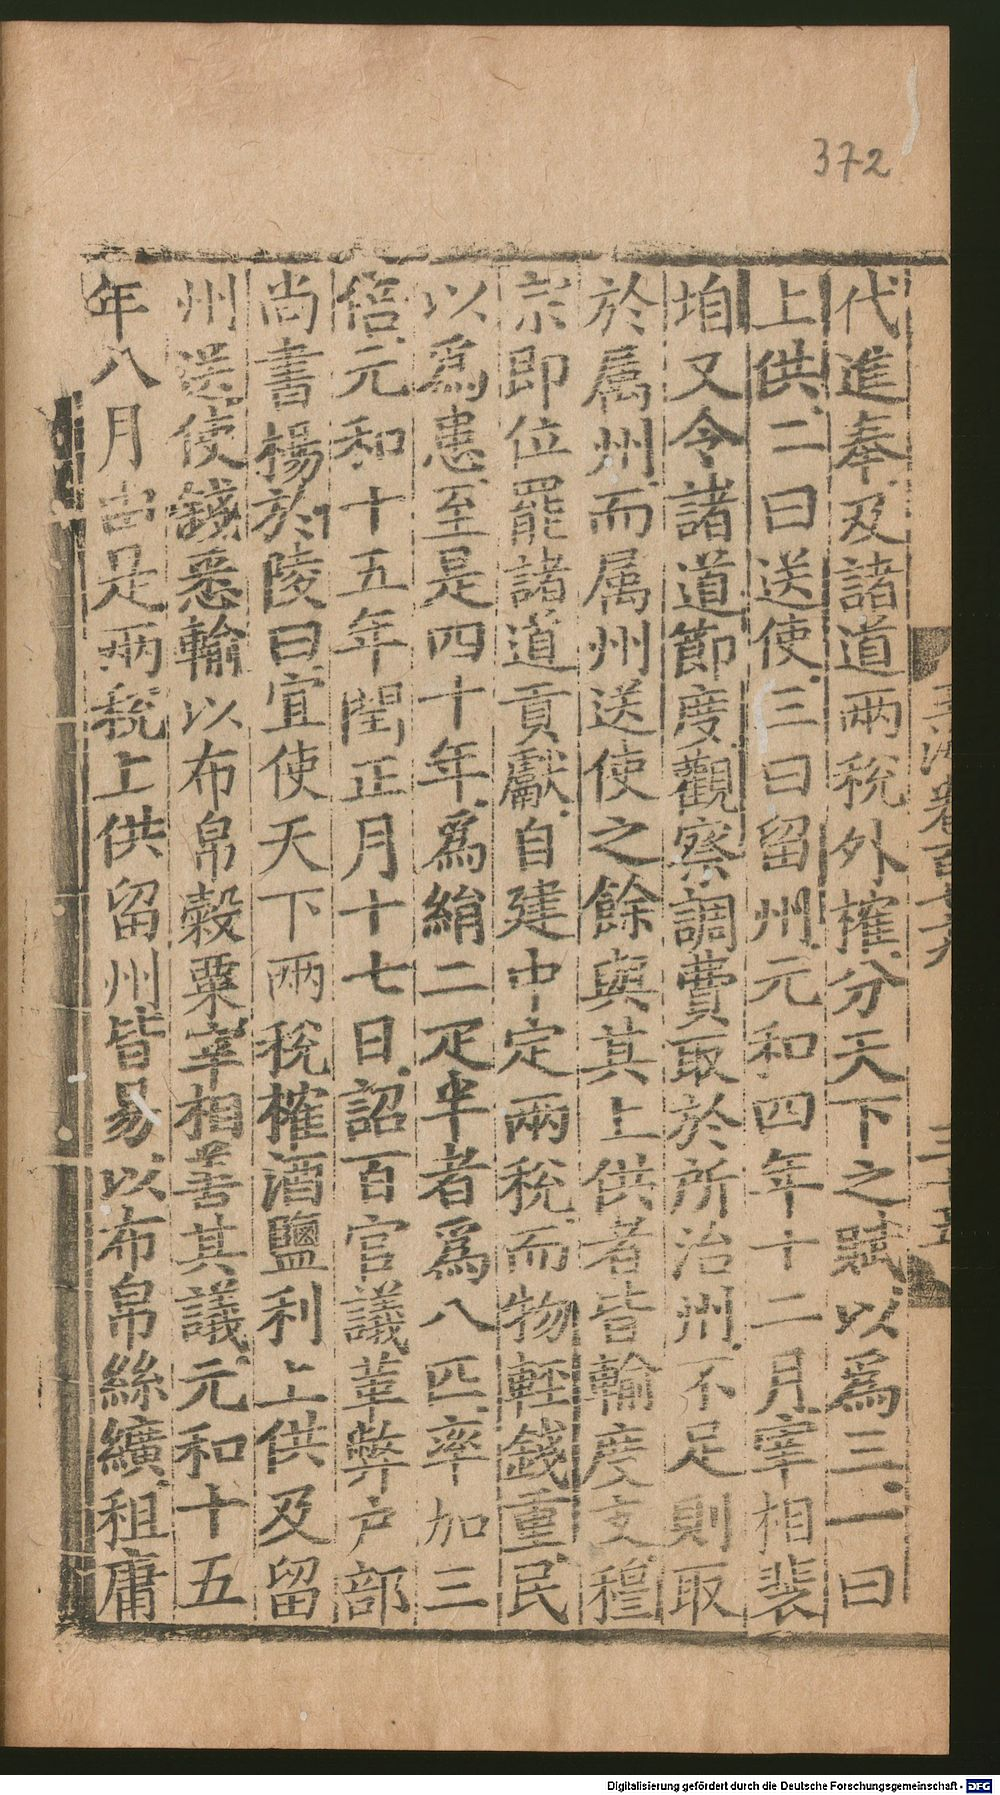 372
代進奉及諸道兩稅外榷分天下之賦以爲三一曰
上供二曰送使三曰留州元和四年十二月宰相裴
垍又令諸道節度觀察調費取於所治州不足則取
於属州而属州送使之餘與其上供者皆輸度支穆
宗即位罷諸道貢獻自建中定兩稅而物輕錢重民
以爲患至是四十年爲絹二疋半者爲八匹率加三
倍元和十五年閏正月十七日詔百官議革弊户部
尚書楊於陵曰宜使天下兩稅榷酒鹽利上供及留
州送使錢悉輸以布帛穀粟宰相善其議元和十五
年八月由是兩稅上供留州皆易以布帛絲纊租庸
Digitalisierung gefördert durch die Deutsche Forschungsgemeinschaft - DFG